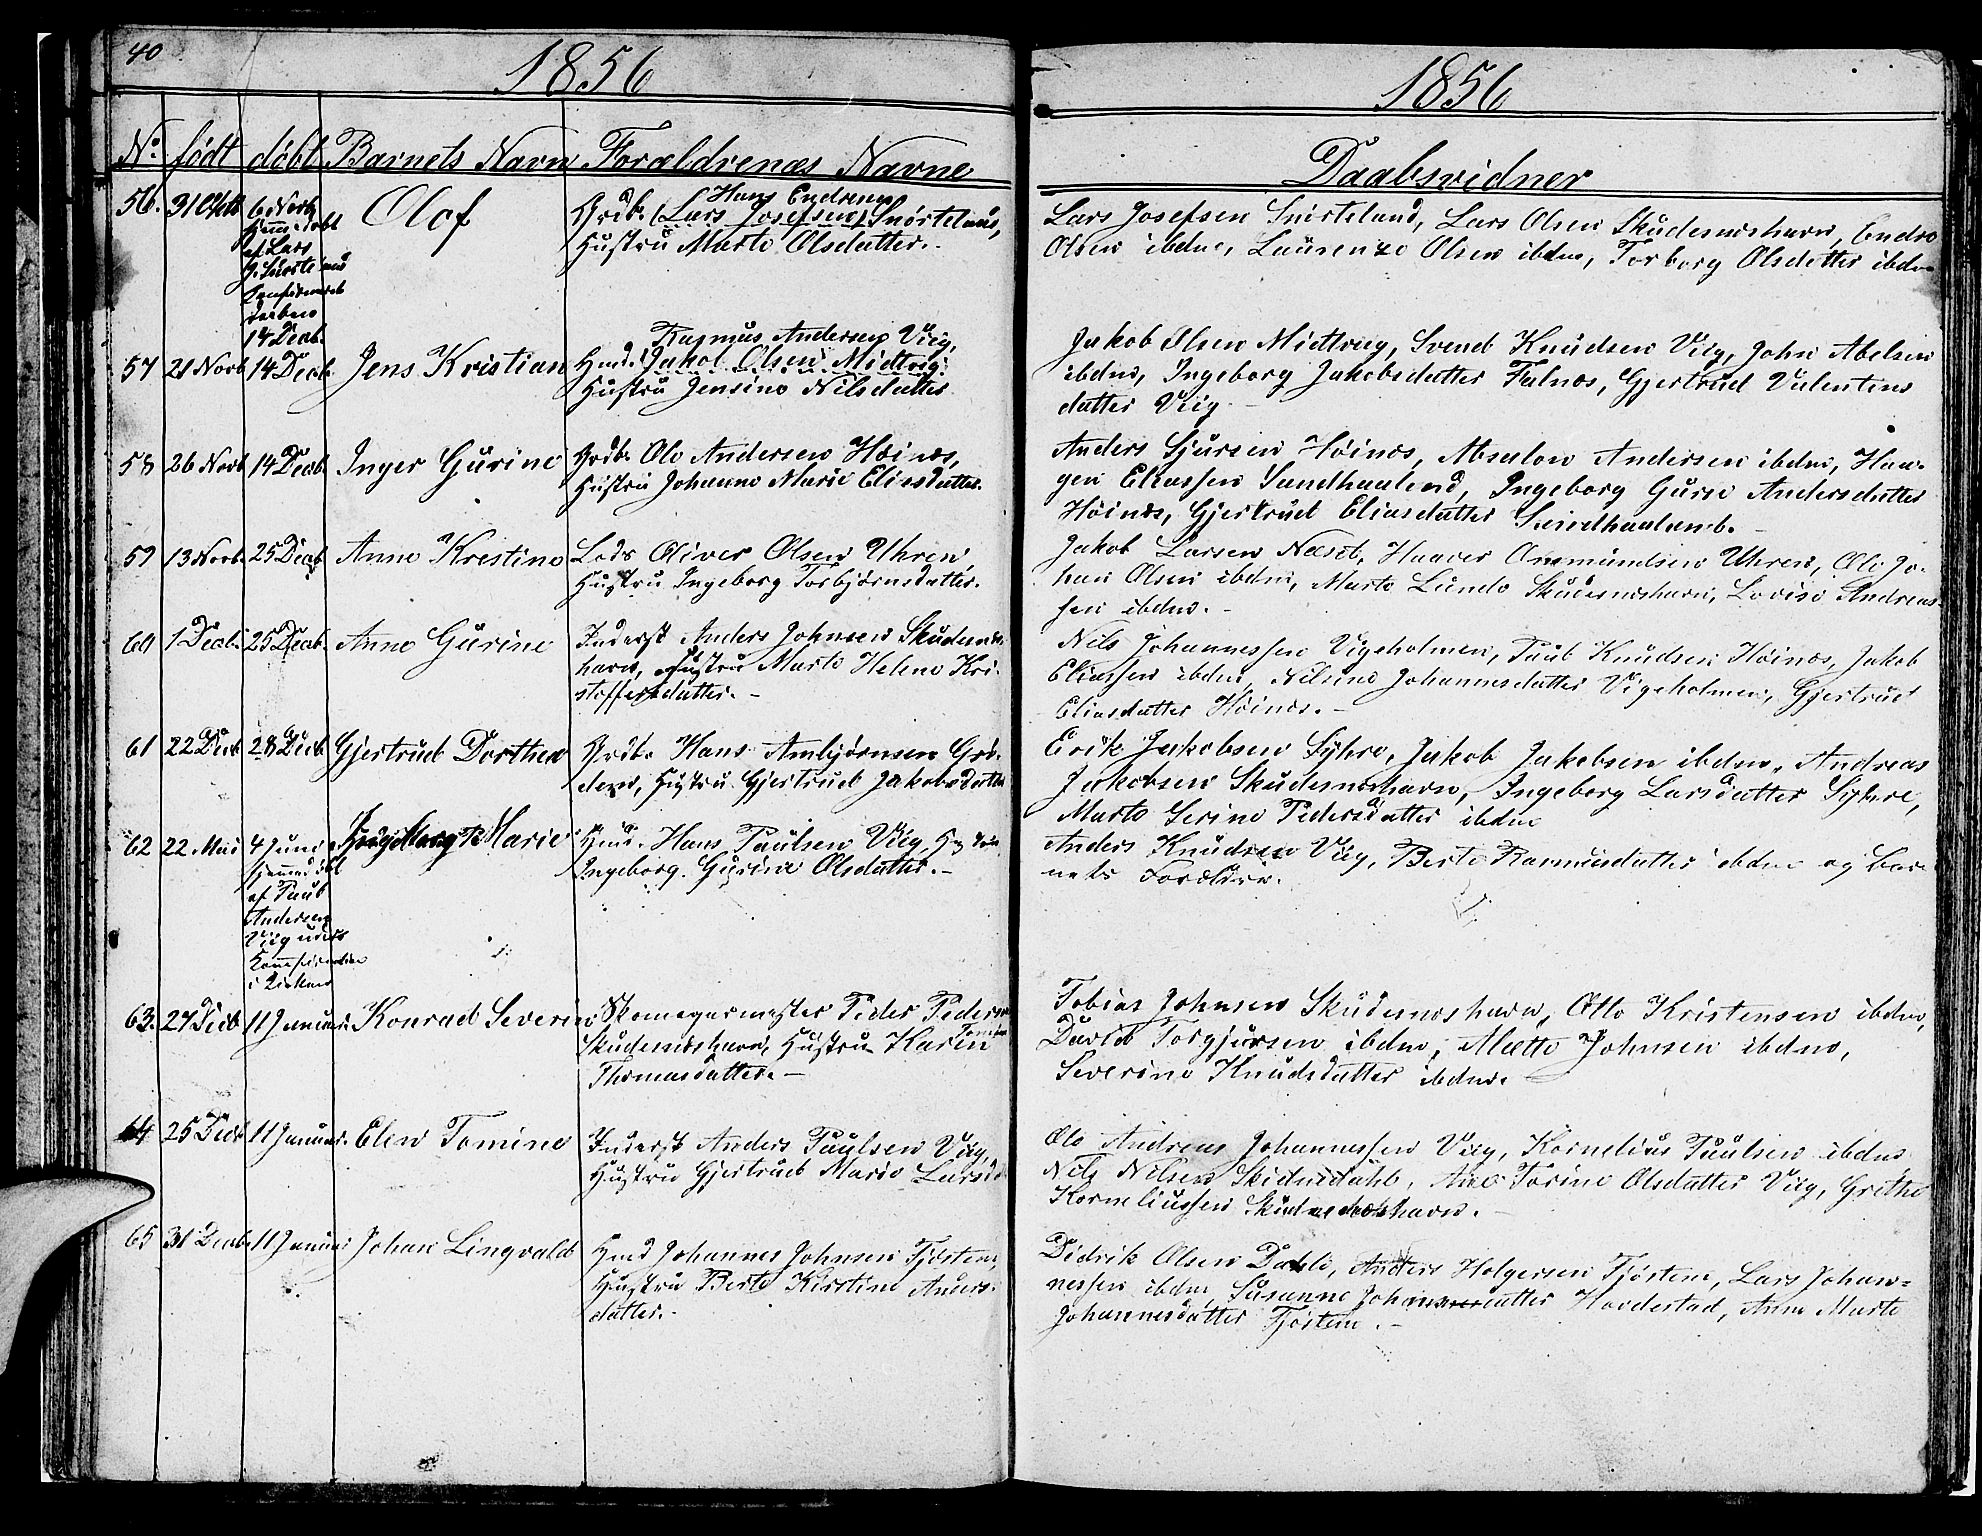 40
1856
No. født døbt Barnets Navn Forældrenes Navne
56. 31 Octb 6 Novb Olof
Hans Endresen
Grdb. (Lars Josefsen) Snørtelnæs,
Hustru Marte Olsdatter.
hjemmedøbt
af Lars
J. Snørtelnæs
Konfirmeret
14 Decb.
Rasmus Andersen Viig,
57 21 Novb 14 Decb. Jens Kristian Hmd. (Jakob Olsen Midtvig)
Hustru Jensine Nilsdatter
58 26 Novb 14 Decb. Inger Gurine Grdb. Ole Andersen Høinæs,
Hustru Johanne Marie Eliasdatter.
59 13 Novb. 25 Decb Anne Kristine Leds Oliver Olsen Uhren,
Hustru Ingeborg Torbjørnsdatter.
60 1 Decb. 25 Decb. Anne Gurine Inderst Anders Johnsen Skudesnæs-
havn, Hustru Marte Helene Kri-
stoffersdatter. –
61 22 Decb 28 Decb. Gjertrud Dorthea Grdb. Hans Ambjørnsen
Hustru Gjertrud Jakobsdatter
62 22 Mai 4 Juni Marie Hmd. Hans Paulsen Viig, Hustru
Ingeborg Gurine Olsdatter. –
hjemmedøbt
af Paul
Andersen
Viig
i Kirken
63. 27 Decb 11 Januar. Konrad Severin Skomagermester Peder Pedersen
Skudesnæshavn, Hustru Karen
Thomasdatter. –
64 25 Decb 11 Januar. Elen Tomine Inderst Anders Paulsen Viig,
Hustru Gjertrud Marie Larsd.
65 31 Decb. 11 Januar. Johan Lingvald Hmd Johannes Johnsen Tjøsteim,
Hustru Berte Kirstine Anders-
datter. –
1856
Daabsvidner
Lars Josefsen Snørteland, Lars Olsen Skudesnæshavn, Endre
Olsen ibdm, Laurenze Olsen ibdm, Torborg Olsdatter ibdm
Jakob Olsen Midtvig, Svend Knudsen Viig, John Abelsen
ibdm, Ingeborg Jakobsdatter Falnæs, Gjertrud Valentins
datter Viig –
Anders Sjursen Høinæs, Absalon Andersen ibdm, Haa-
gen Eliassen Sandhaaland, Ingeborg Gurie Andersdatter
Høinæs, Gjertrud Eliasdatter Sandhaaland. –
Jakob Larsen Næset, Haaver Omundsen Uhren, Ole Jo-
han Olsen ibdm, Marte Lunde Skudesnæshavn, Lovise Andreas-
sen ibdm. –
Nils Johannessen Vigeholmen, Paul Knudsen Høinæs, Jakob
Eliassen ibdm, Nilsine Johannesdatter Vigeholmen, Gjertrud
Eliasdatter Høinæs. –
Erik Jakobsen Syhre, Jakob Jakobsen ibdm, Andreas
Jakobsen Skudesnæshavn, Ingeborg Larsdatter Syhre,
Marte Serine Pedersdatter ibdm
Anders Knudsen Viig, Berte Rasmusdatter ibdm og Bar-
nets Forældre.
Tobias Johnsen Skudesnæshavn, Otto Kristensen ibdm,
David Torgjursen ibdm, Mætte Johnsen ibdm,
Severine Knudsdatter ibdm.
Ole Andreas Johannessen Viig, Kornelius Paulsen ibdm
Nils Nilsen Ane Torine Olsdatter Viig, Grethe
Korneliussen Skudesnæshavn. –
Didrik Olsen Dahle, Anders Holgersen Tjøsteim, Lars Johan-
nessen ibdm, Susanne Johannesdatter Hovdestad, Anne Marte
Johannesdatter Tjøsteim. –